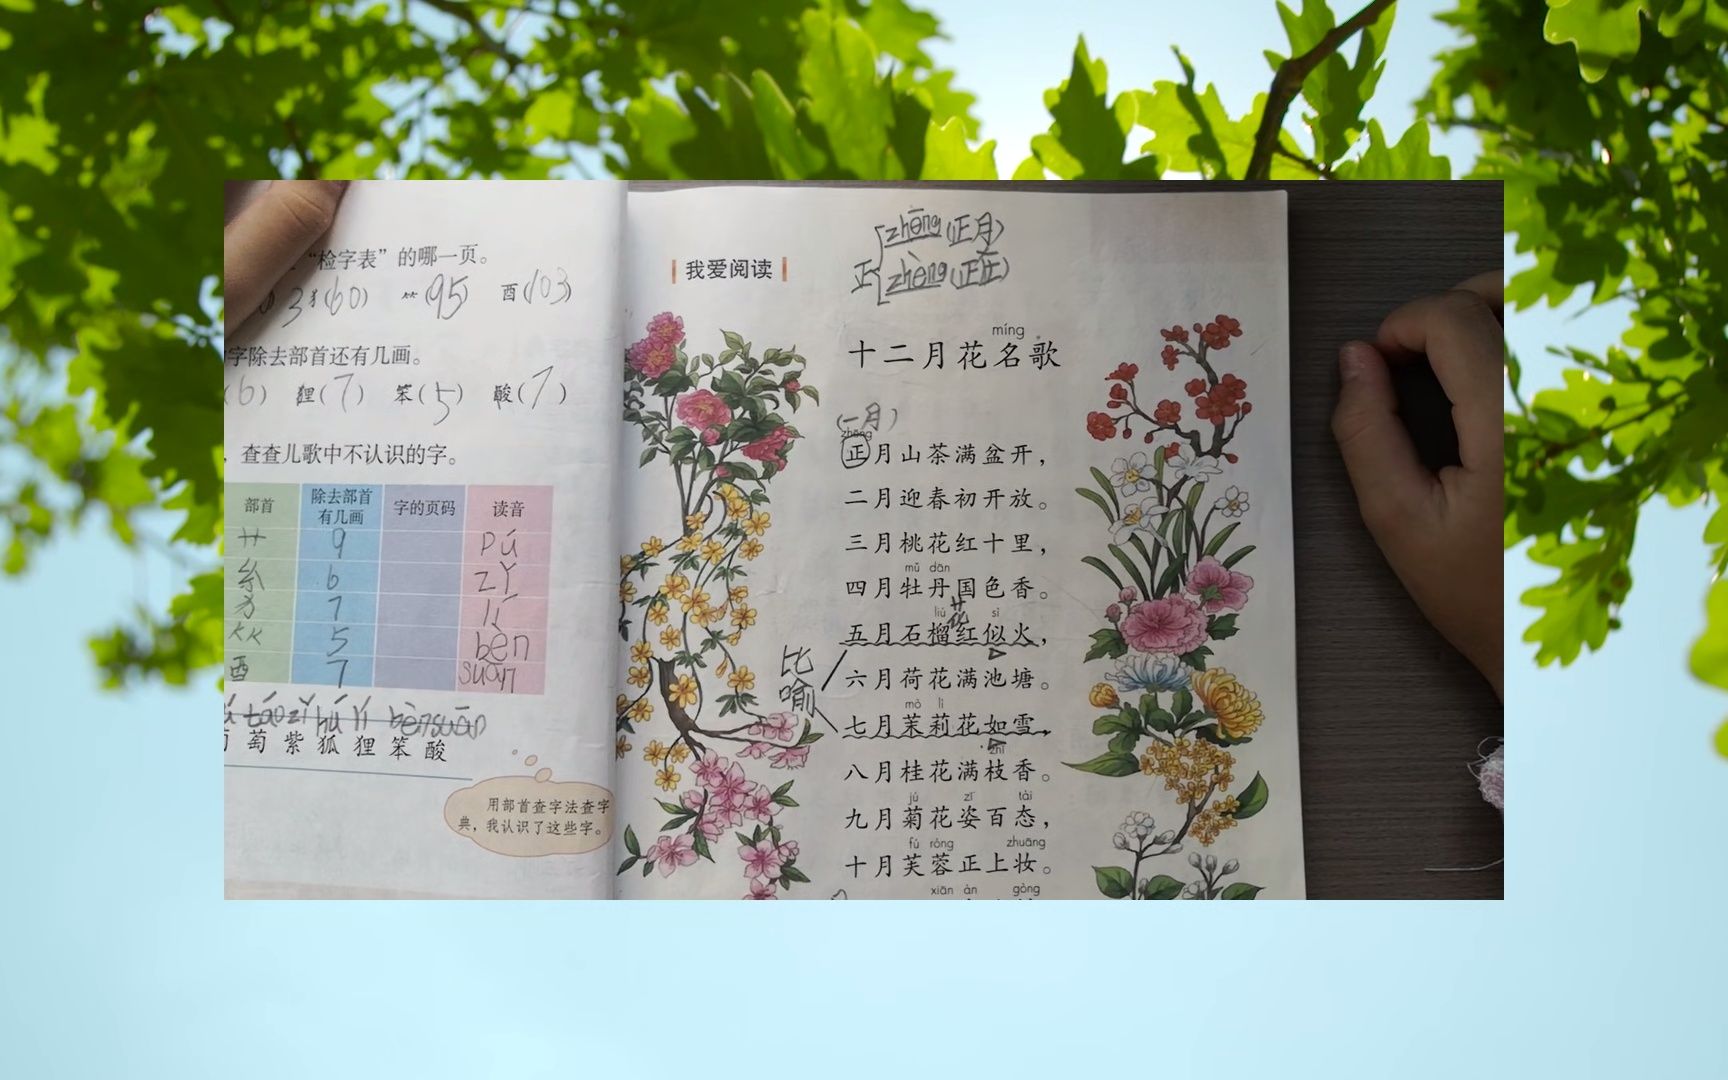 “检字表”的哪一页。
3 犭(60) ⺮(95) 酉(103)
字除去部首还有几画。
(6) 狸(7) 笨(5) 酸(7)
，查查儿歌中不认识的字。
部首 除去部首有几画 字的页码 读音
艹 9 pú
糸 6 zǐ
犭 7 lí
⺮ 5 bèn
酉 7 suān
táo zǐ hú lí bèn suān
萄 紫 狐 狸 笨 酸
用部首查字法查字
典，我认识了这些字。
我爱阅读
正 zhēng (正月)
zhèng (正在)
míng
十二月花名歌
(一月)
zhēng
正月山茶满盆开，
二月迎春初开放。
三月桃花红十里，
mǔ dān
四月牡丹国色香。
花
liú sì
五月石榴红似火，
比喻
六月荷花满池塘。
mò lì
七月茉莉花如雪，
zhī
八月桂花满枝香。
jú zī tài
九月菊花姿百态，
fú róng zhuāng
十月芙蓉正上妆。
xiān àn gòng